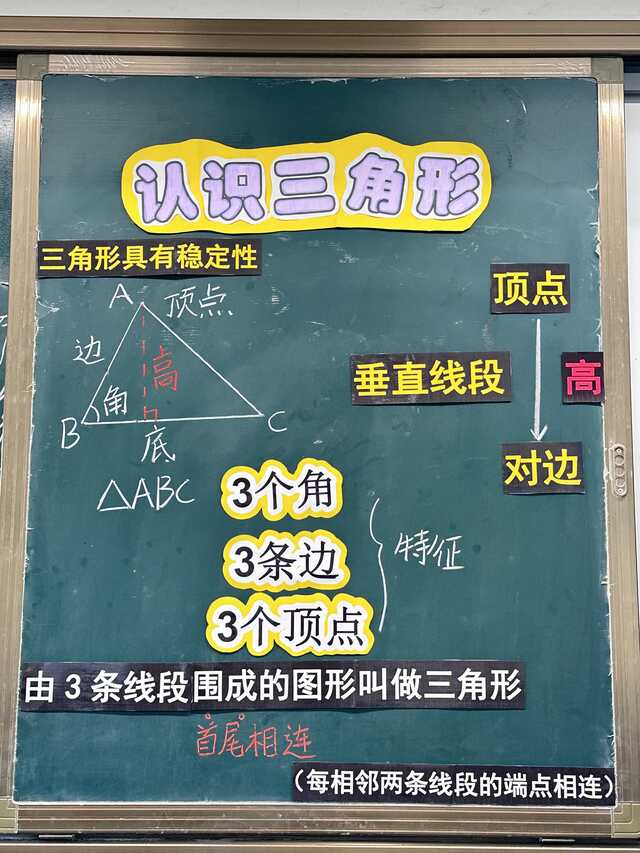 认识三角形
三角形具有稳定性
A 顶点
边
高
角
B
C
底
△ABC
顶点
垂直线段
高
对边
3个角
3条边
3个顶点
特征
由3条线段围成的图形叫做三角形
首尾相连
(每相邻两条线段的端点相连)